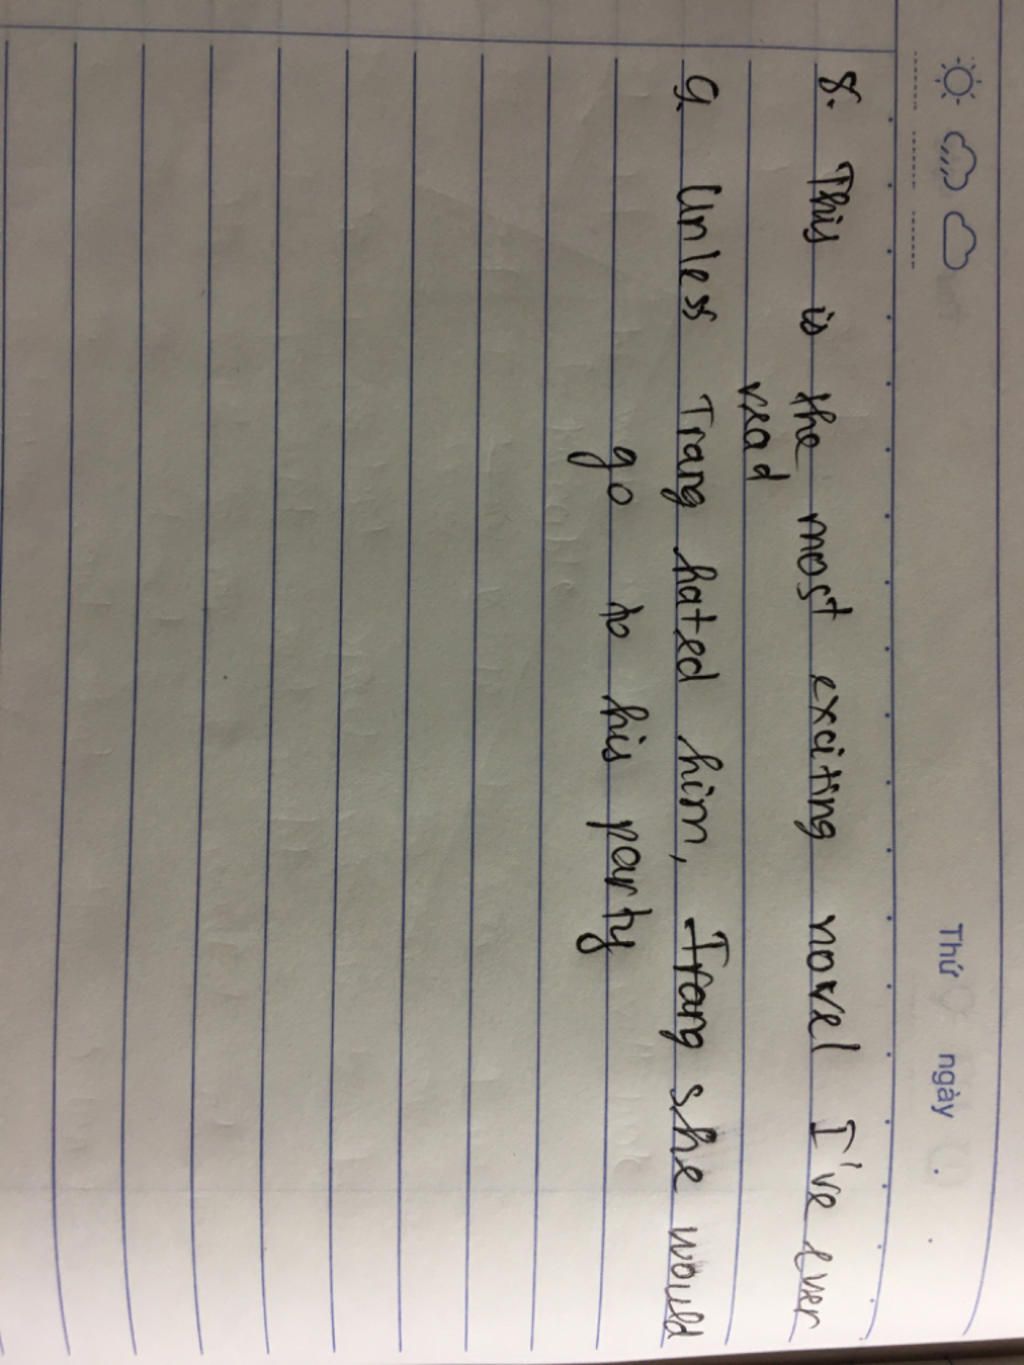 Thứ ngày
8. This is the most exciting novel I've ever
read
9. Unless Trang hated him, Trang she would
go to his party